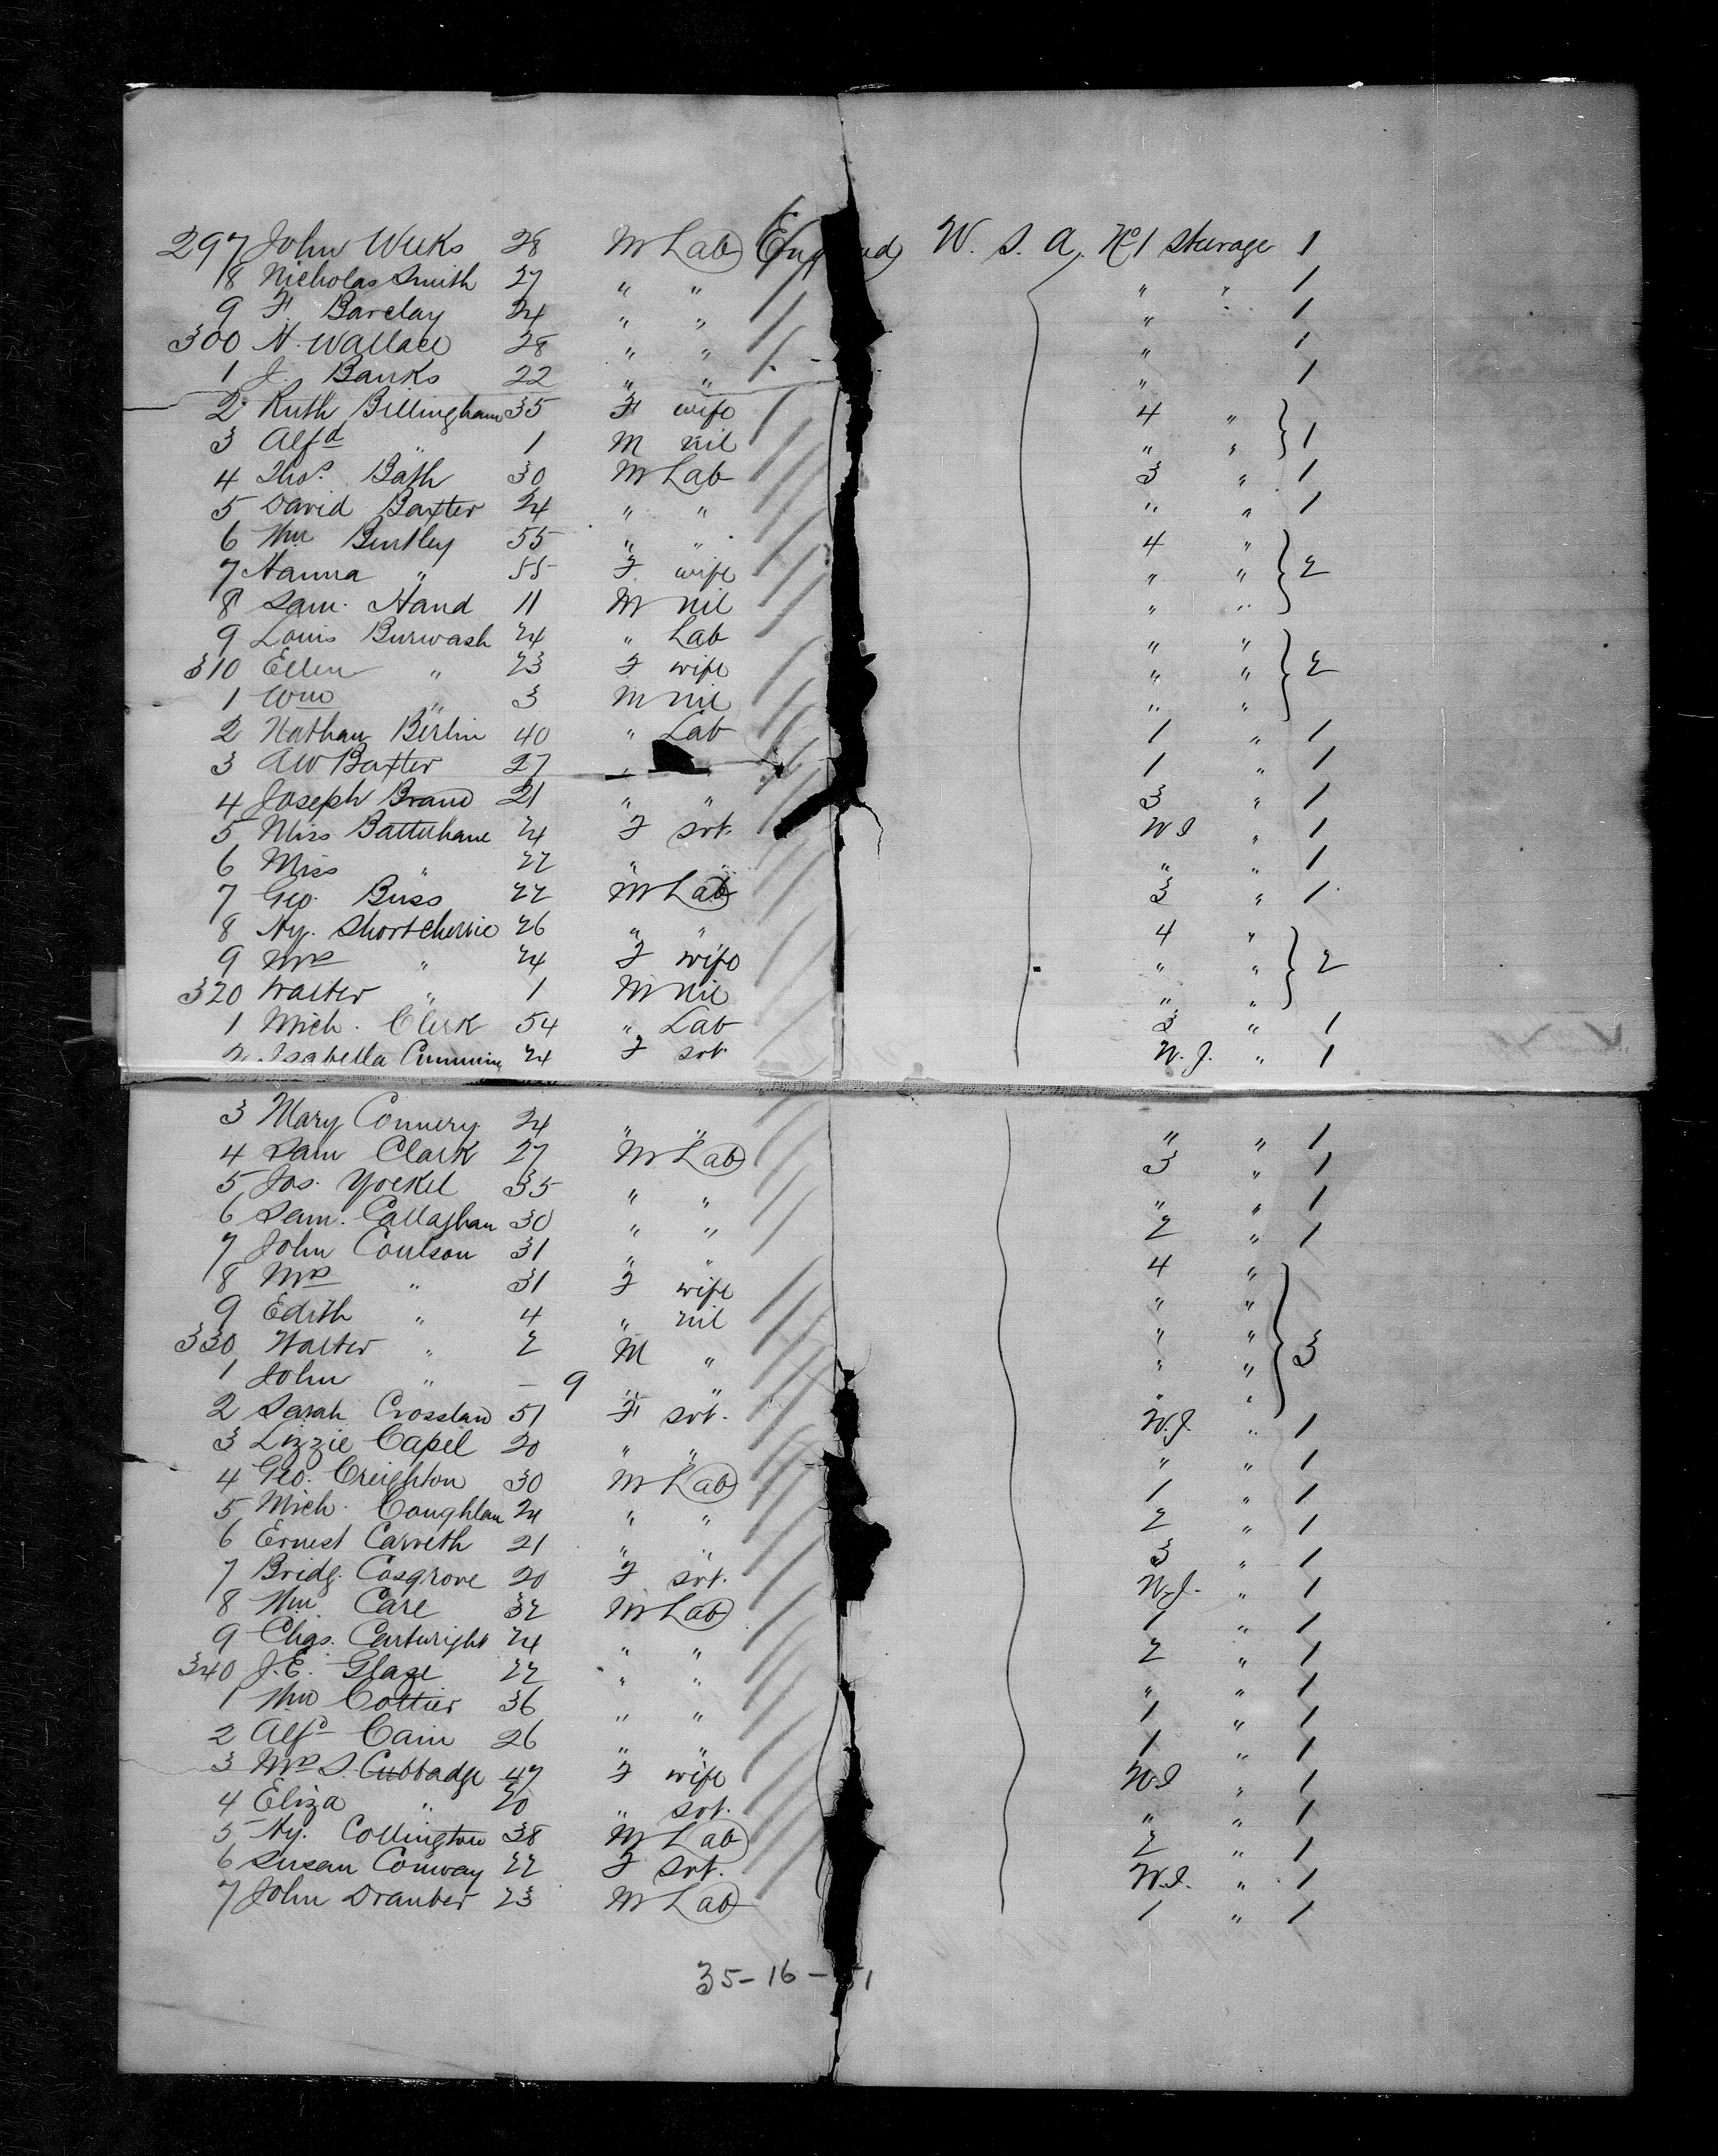 297 John Weeks 28 M Lab England U.S.A. No 1 Steerage 1
8 Nicholas Smith 27 " " " " 1
9 F. Barclay 24 " " " 1
300 N. Wallace 28 " " " 1
1 J. Banks 22 " " " 1
2 Ruth Billingham 35 F wife 4 "
3 Alfd " 1 M nil " " 1
4 Thos. Bath 30 M Lab 3 " 1
5 David Baxter 24 " " " " 1
6 Wm Bentley 55 " " 4 "
7 Hanna " 55 F wife " " 2
8 Sam. Hand 11 M nil " "
9 Louis Burwash 24 " Lab " "
310 Ellen " 23 F wife " " 2
1 Wm " 3 M nil " "
2 Nathan Berlin 40 " Lab 1 " 1
3 AW Baxter 27 " 1 " 1
4 Joseph Brand 21 " " 3 " 1
5 Miss 24 F svt. " 1
6 Miss " 22 " " " " 1
7 Geo. Buss 22 M Lab 3 " 1
8 Hy. 26 " " 4 "
9 Mrs " 24 F wife " " 2
320 Walter " 1 M nil " "
1 Mich. Clerk 54 " Lab 3 " 1
2 Isabella Cumming 24 F svt. " 1
3 Mary Connery 24 " " " " 1
4 Sam Clark 27 M Lab 3 " 1
5 Jos. Yoekel 35 " " " " 1
6 Sam. Callaghan 30 " " 2 " 1
7 John Coulson 31 " " 4 "
8 Mrs " 31 F wife " "
9 Edith " 4 " nil " " 3
330 Walter " 2 M " " "
1 John " – 9 " " " "
2 Sarah Crossland 51 F svt. " 1
3 Lizzie Capel 20 " " " " 1
4 Geo. Creighton 30 M Lab 1 " 1
5 Mich. Coughlan 24 " " 2 " 1
6 Ernest Carveth 21 " " 3 " 1
7 Bridg. Cosgrove 20 F svt. " 1
8 Wm Care 32 M Lab 1 " 1
9 Chas. Cartwright 24 " " 2 " 1
340 J.E. Glaze 22 " " " " 1
1 Wm Cottier 36 " " 1 " 1
2 Alfd Cain 26 " " 1 " 1
3 Mrs S. Cubbadge 47 F wife " 1
4 Eliza " 20 " svt. " " 1
5 Hy. Collington 38 M Lab 2 " 1
6 Susan Conway 22 F svt. " 1
7 John 23 M Lab 1 " 1
35–16–51